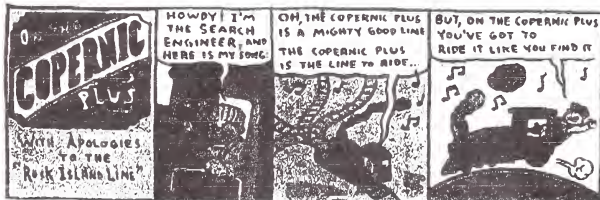 ON THE
COPERNIC
PLUS
"WITH APOLOGIES
TO THE
"ROCK ISLAND LINE"
HOWDY! I'M
THE SEARCH
ENGINEER, AND
HERE IS MY SONG:
OH, THE COPERNIC PLUS
IS A MIGHTY GOOD LINE
THE COPERNIC PLUS
IS THE LINE TO RIDE...
BUT, ON THE COPERNIC PLUS
YOU'VE GOT TO
RIDE IT LIKE YOU FIND IT